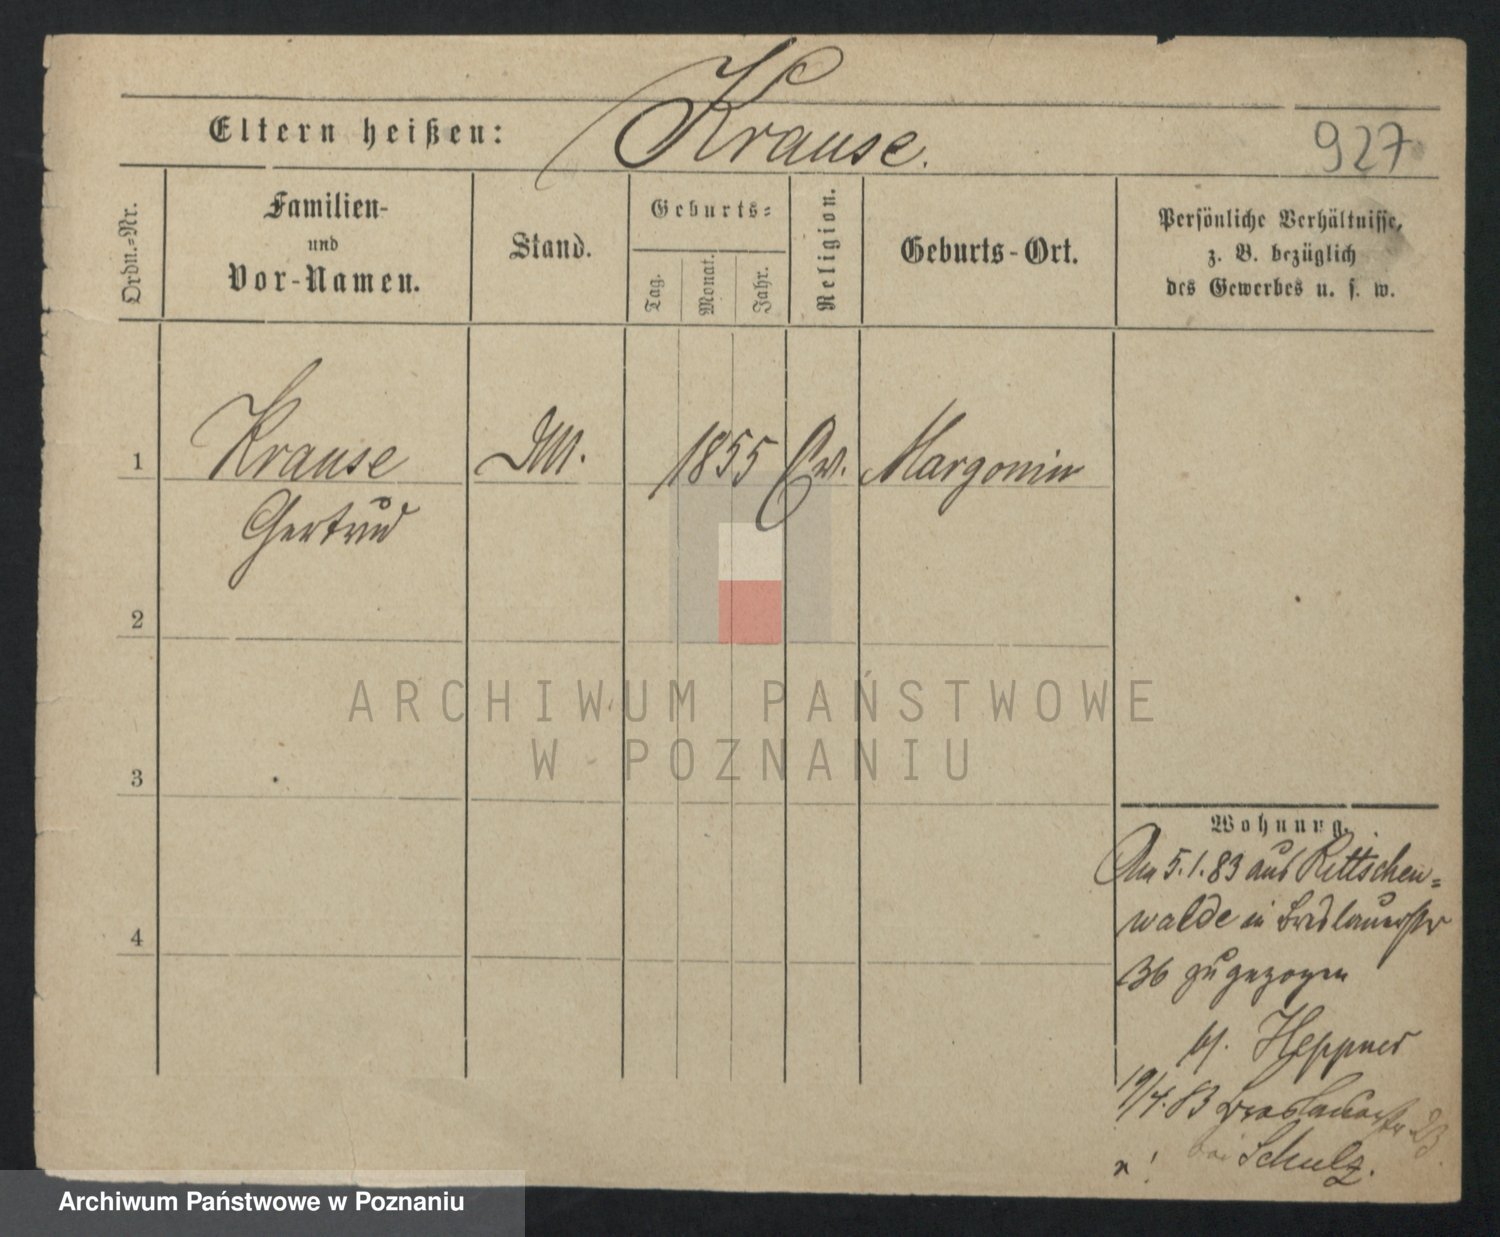 Krause.
Eltern heißen:
927
Ordn.-Nr.
Familien-
und
Vor-Namen.
Stand.
Geburts-
Tag.
Monat.
Jahr.
Religion.
Geburts-Ort.
Persönliche Verhältnisse,
z. B. bezüglich
des Gewerbes u. s. w.
1
Krause
Gertrud
DM.
1855
Ev.
Margonin
2
3
4
ARCHIWUM PAŃSTWOWE
W POZNANIU
Wohnung.
Am 5.1.83 aus Rittschen=
walde in Breslauerstr
36 zugezogen
bei Heppner
19/4.83 Breslauerstr 23
bei Schulz.
Archiwum Państwowe w Poznaniu